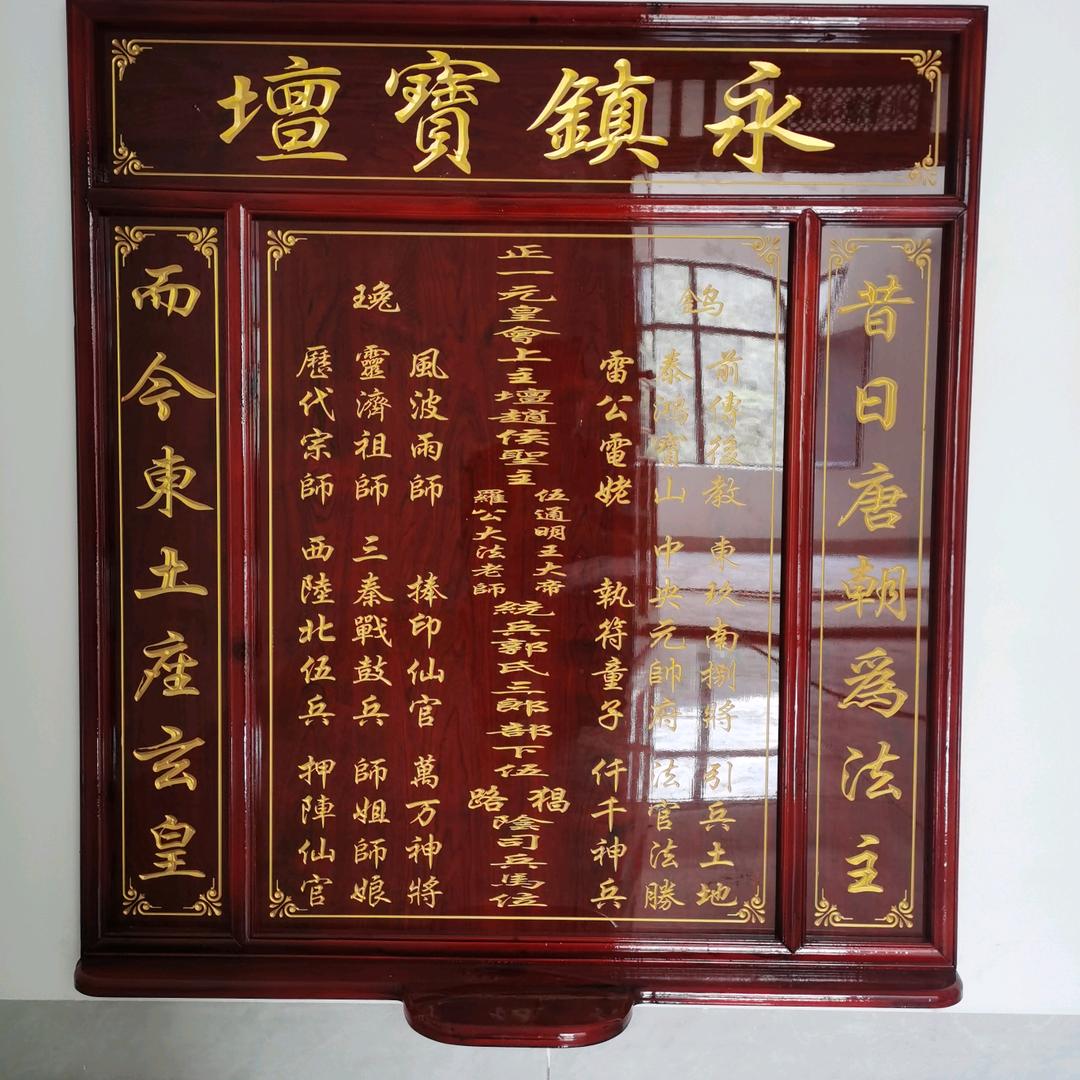 永鎮寶壇
昔日唐朝爲法主
前傳後教 東玖南捌將 引兵土地
泰鴻寶山 中央元帥府 法官法勝
雷公電姥 執符童子 仟千神兵
正一元皇會上主壇趙侯聖主
伍通明王大帝
羅公大法老師
統兵郭氏三郎部下伍
猖路
陰司兵馬位
風波雨師 捧印仙官 萬万神將
靈濟祖師 三秦戰鼓兵 師姐師娘
歷代宗師 西陸北伍兵 押陣仙官
而今東土座玄皇